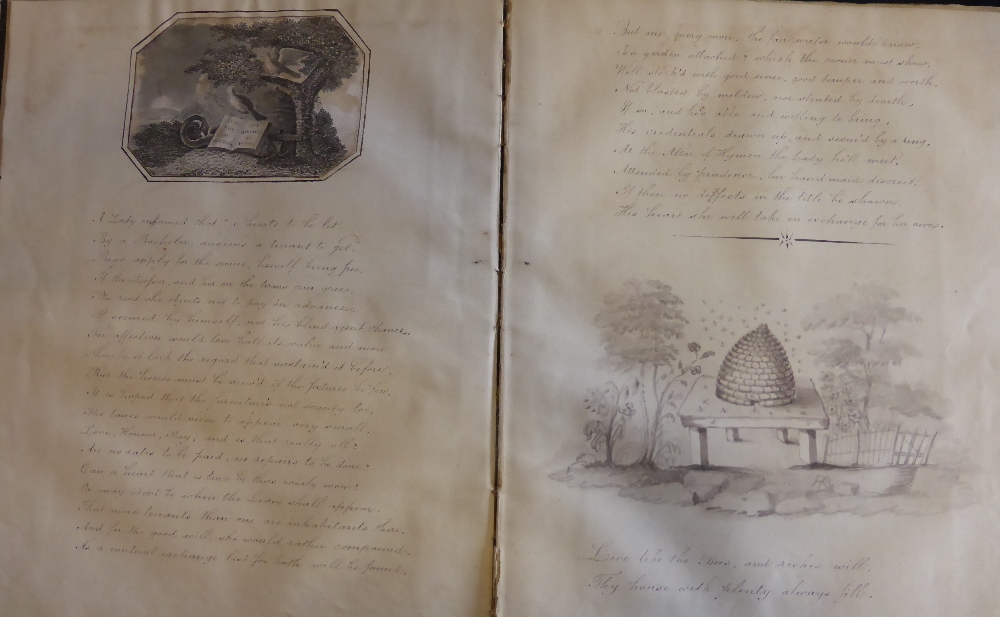 A Lady informed that "a heart's to be let
By a Bachelor, anxious a tenant to get,"
apply for the same, himself being free
If the and on the terms can agree,
The rent she objects not to pay in advance,
If secured by himself, not his blind agent chance,
For affection would lose half its value and more
Should it lack the regard that sustain'd it before,
But the house must be view'd if the fixtures be few,
It is hoped that the furniture's not scanty too,
The taxes would seem to appear very small,
Love, Honour, Obey, and is that really all?
Are no rates to be paid, no repairs to be done?
Can a heart that is true be thus easily won?
Or may it be where the Lease shall appear,
That more tenants than one are inhabitants there,
And for the good will she would rather compound,
As a mutual exchange best for both will be found.
But one query more, the fair writer would know,
Is a garden attached? which the owner must show,
Well stock'd with good sense, good temper and worth,
Not blasted by mildew, nor by dearth,
If so, and he's able and willing to bring,
His credentials drawn up, and secur'd by a ring,
At the Altar of Hymen the Lady he'll meet,
Attended by prudence, her hand-maid discreet,
If then no deffects in the title be shewn,
His heart she will take in exchange for her own.
Live like the Bees, and riches will,
Thy house with plenty always fill.